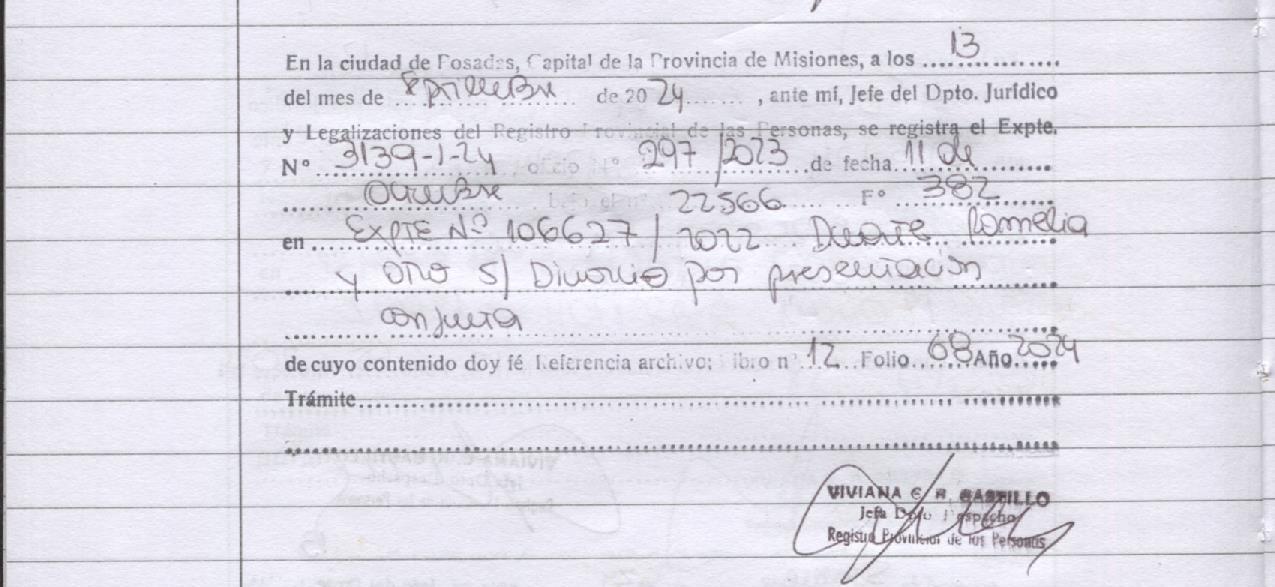 En la ciudad de Posadas, Capital de la Provincia de Misiones, a los 13
del mes de Septiembre de 2024, ante mí, Jefe del Dpto. Jurídico
y Legalizaciones del Registro Provincial de las Personas, se registra el Expte.
Nº 3139-1-24 oficio Nº 297/2023 de fecha 11 de
Octubre bajo el nº 22566 Fº 382
en EXPTE Nº 106627/2022 Duarte Romelia
y otro s/ Divorcio por presentación
conjunta
de cuyo contenido doy fé Referencia archivo: Libro nº 12 Folio 68 Año 2024
Trámite
VIVIANA C. R. CASTILLO
Jefa Dpto Despacho
Registro Provincial de las Personas